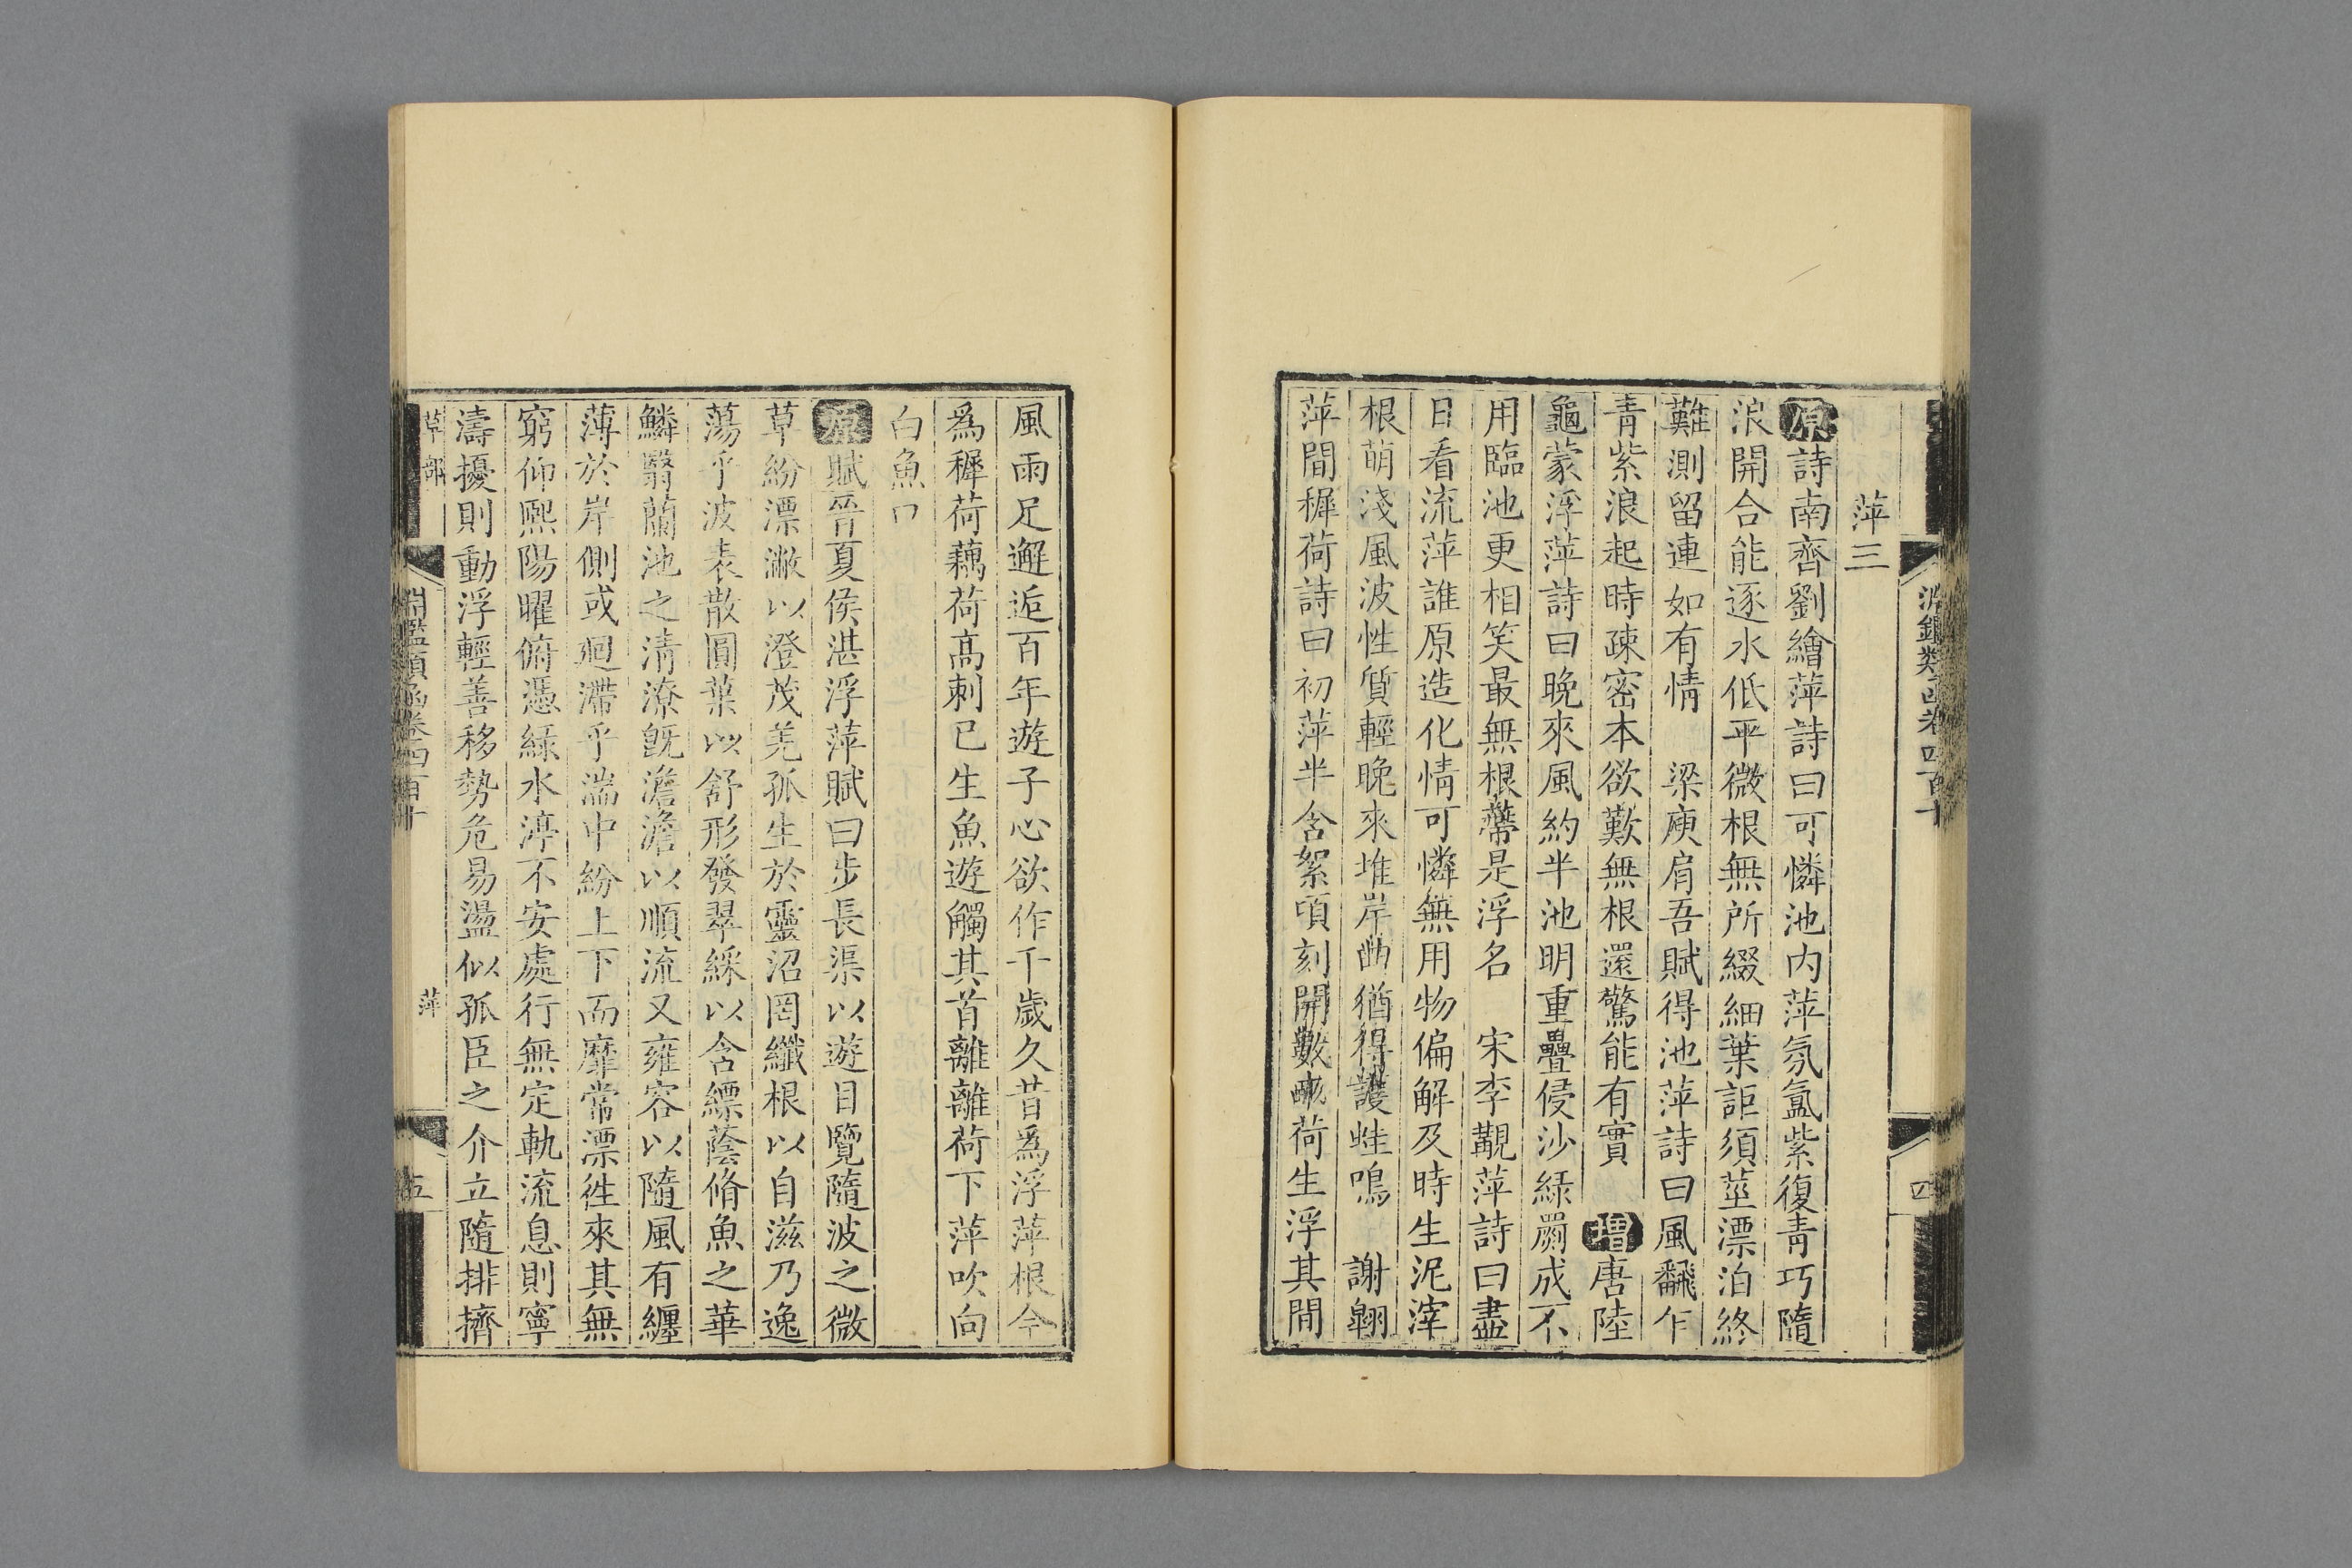 淵鑑類函卷四百十
四
萍三
原詩南齊劉繪萍詩曰可憐池内萍氛氳紫復青巧隨
浪開合能逐水低平微根無所綴細葉詎須莖漂泊終
難測留連如有情 梁庾肩吾賦得池萍詩曰風翻乍
青紫浪起時疎密本欲歎無根還驚能有實 增唐陸
龜蒙浮萍詩曰晚來風約半池明重疊侵沙綠罽成不
用臨池更相笑最無根蔕是浮名 宋李覯萍詩曰盡
日看流萍誰原造化情可憐無用物偏解及時生泥滓
根萌淺風波性質輕晚來堆岸曲猶得護蛙鳴 謝翱
萍間穉荷詩曰初萍半含絮頃刻開數畝荷生浮其間
風雨足邂逅百年遊子心欲作千歲久昔爲浮萍根今
爲穉荷藕荷高刺已生魚遊觸其首離離荷下萍吹向
白魚口
原賦晉夏侯湛浮萍賦曰步長渠以遊目覽隨波之微
草紛漂潎以澄茂羌孤生於靈沼因纖根以自滋乃逸
蕩乎波表散圓葉以舒形發翠綵以含縹蔭脩魚之華
鱗翳蘭池之清潦旣澹澹以順流又雍容以隨風有纏
薄於岸側或迴滯乎湍中紛上下而靡常漂徃來其無
窮仰熙陽曜俯憑綠水渟不安處行無定軌流息則寧
濤擾則動浮輕善移勢危易盪似孤臣之介立隨排擠
草部
淵鑑類函卷四百十
萍
五